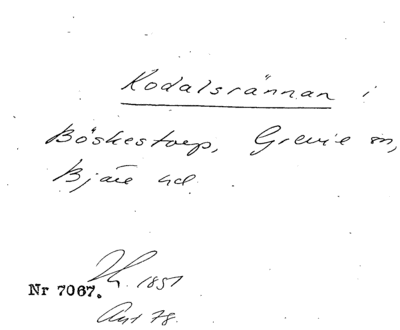 Kodalsrännan i
Böskestorp, Grevie sn,
Bjäre hd
1851
Nr 7067.
78.